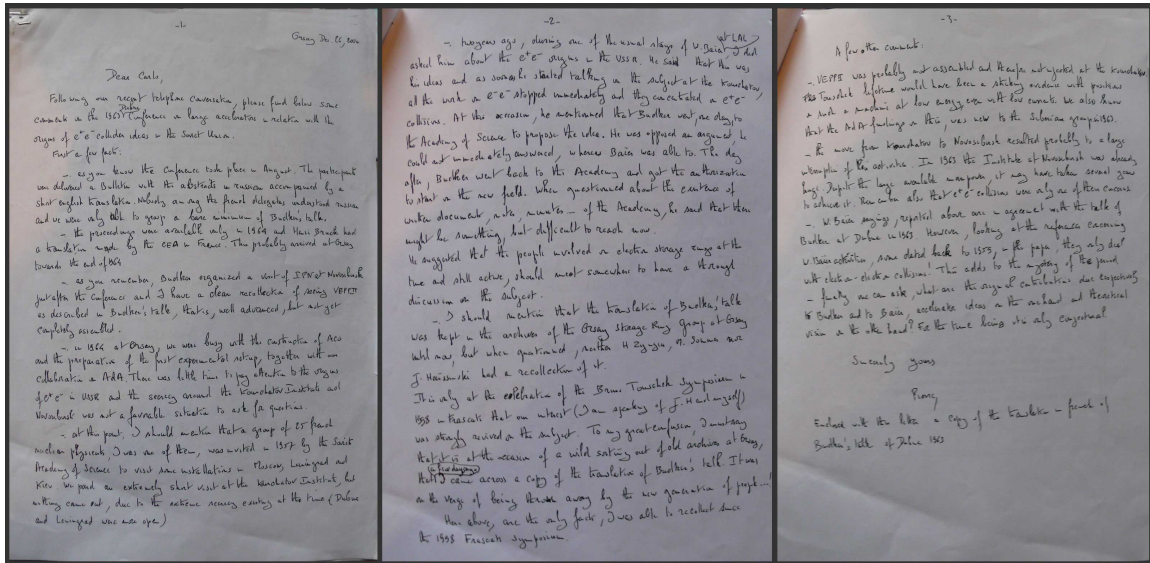 -1-
Orsay Dec. 26, 2000
Dear Carlo,
Following our recent telephone conversation, please find below some
comments on the 1963 Dubna Conference on large accelerators in relation with the
origins of e+e- collider ideas in the Soviet Union.
First a few facts:
- as you know the Conference took place in August. The participants
were delivered a Bulletin with the abstracts in russian accompanied by a
short english translation. Nobody among the french delegates understood russian
and we were only able to grasp a bare minimum of Budker's talk.
- the proceedings were available only in 1964 and Henri Bruck had
a translation made by the CEA in France. This probably arrived at Orsay
towards the end of 1964
- as you remember, Budker organized a visit of INP at Novosibirsk
just after the Conference and I have a clear recollection of seeing VEPPII
as described in Budker's talk, that is, well advanced, but not yet
completely assembled.
- in 1964 at Orsay, we were busy with the construction of Aco
and the preparation of the first experimental set up, together with our
collaboration on AdA. There was little time to pay attention to the origins
of e+e- in USSR and the secrecy around the Kourchatov Institute and
Novosibirsk was not a favorable situation to ask for questions.
- at this point, I should mention that a group of 25 french
nuclear physicists, I was one of them, was invited in 1957 by the Soviet
Academy of Science to visit some installations in Moscow, Leningrad and
Kiev. We paid an extremely short visit at the Kourchatov Institute, but
nothing came out, due to the extreme secrecy existing at the time (Dubna
and Leningrad was more open)
-2-
- two years ago, during one of the usual stages of V. Baier at LAL I
asked him about the e+e- origins in the USSR. He said that this was
his ideas and as soon as he started talking on the subject at the Kourchatov,
all the work on e-e- stopped immediately and they concentrated on e+e-
collisions. At this occasion, he mentioned that Budker went, one day, to
the Academy of Science to propose the idea. He was opposed an argument, he
could not immediately answered, whereas Baier was able to. The day
after, Budker went back to the Academy and got the authorization
to start on the new field. When questioned about the existence of
written document, note, minutes ... of the Academy, he said that there
might be something, but difficult to reach now.
He suggested that the people involved on electron storage rings at the
time and still active, should meet somewhere to have a thorough
discussion on the subject.
- I should mention that the translation of Budker's talk
was kept in the archives of the Orsay storage Ring group at Orsay
until now, but when questioned, neither H Zyngier, G. Sommer nor
J. Haissinski had a recollection of it.
It is only at the celebration of the Bruno Touschek Symposium in
1998 in Frascati that our interest (I am speaking of J. H and myself)
was strongly revived on the subject. To my great confusion, I must say
that it is at the occasion of a wild sorting out of old archives at Orsay,
a few days ago
that I came across a copy of the translation of Budker's talk. It was
on the verge of being thrown away by the new generation of people...!
Here above, are the only facts, I was able to recollect since
the 1998 Frascati symposium.
-3-
A few other comments:
- VEPPII was probably not assembled and therefore not injected at the Kourchatov,
the Touschek lifetime would have been a striking evidence with positrons
in such a machine at low energy, even with low currents. We also know
that the AdA findings on this, was new to the Siberian group in 1963.
- the move from Kourchatov to Novosibirsk resulted probably to a large
interruption of the activities. In 1963 the Institute at Novosibirsk was already
huge. Despite the large available manpower, it may have taken several years
to achieve it. Remember also that e+e- collisions were only one of their concerns
- V. Baier sayings, reported above are in agreement with the talk of
Budker at Dubna in 1963. However, looking at the reference concerning
V. Baier activities, some dated back to 1959, in the paper, they only deal
with electron-electron collisions! This adds to the mystery of the period
- finally one can ask, what are the original contributions due respectively
to Budker and to Baier, accelerator ideas on the one hand and theoretical
vision on the other hand? For the time being it is only conjectural
Sincerely yours
Pierre
Enclosed with this letter a copy of the translation in french of
Budker's talk of Dubna 1963